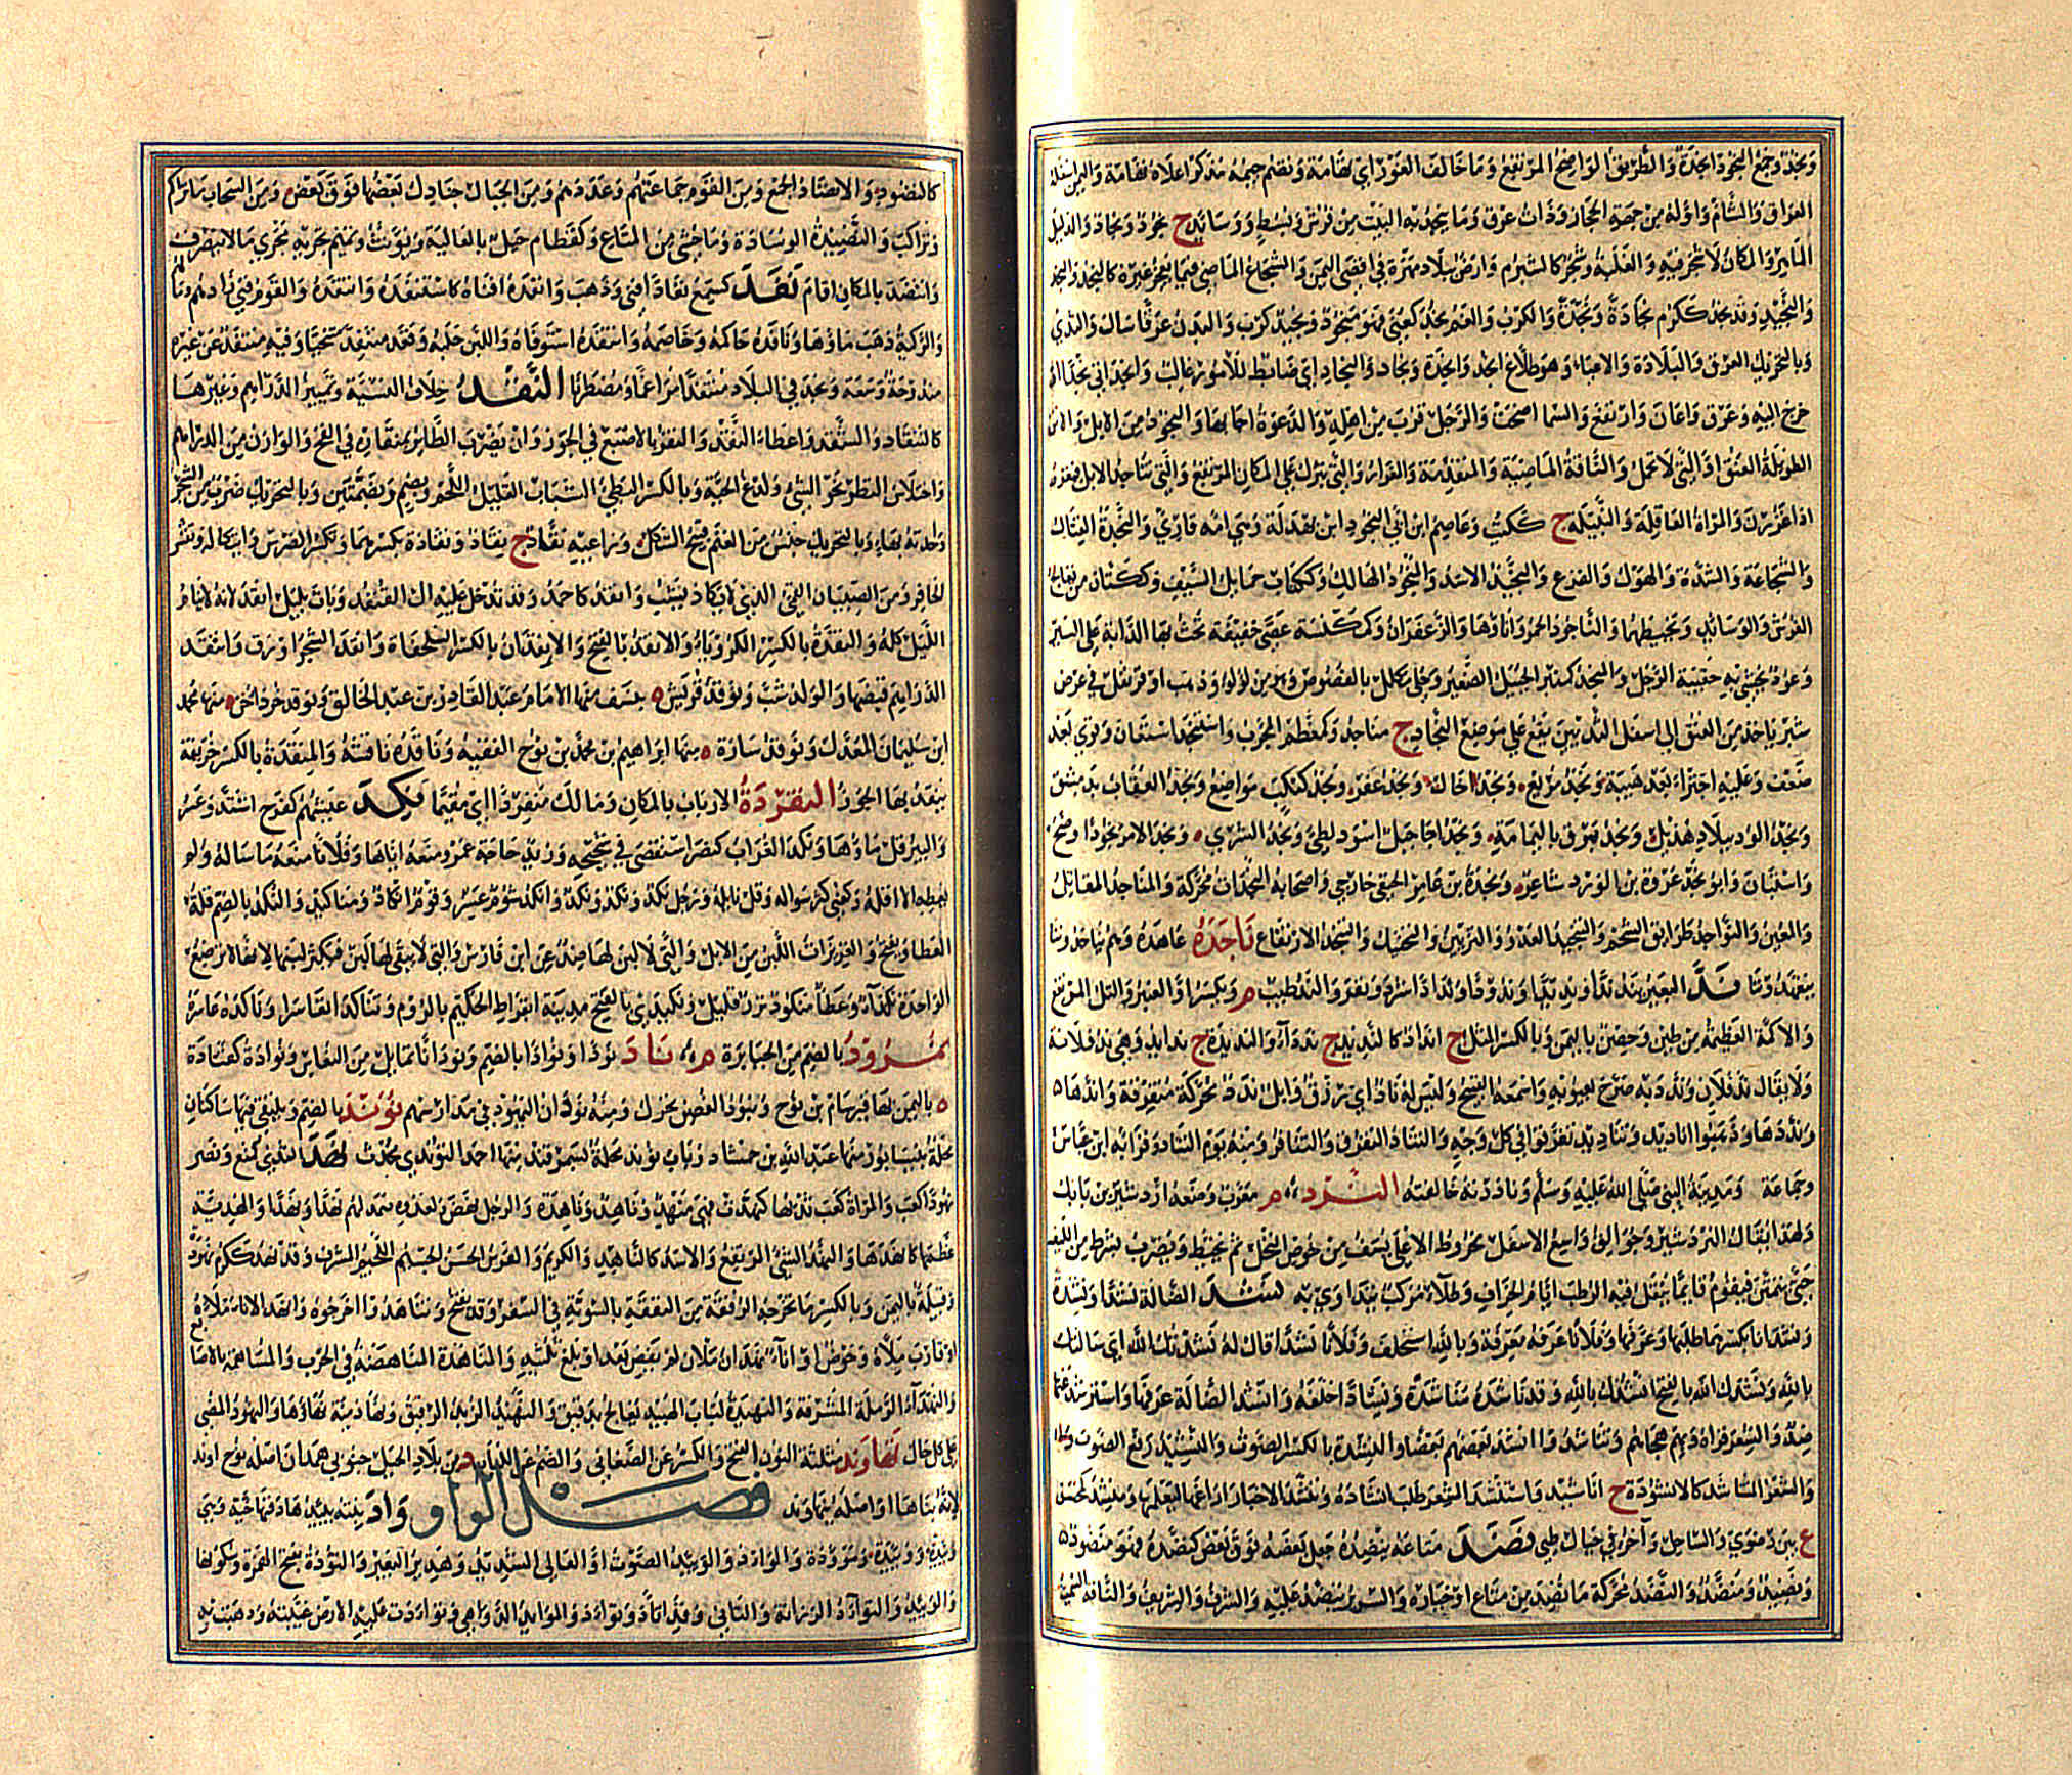 ونجد وجمع النجود انجدة والطريق الواضح المرتفع وما خالف الغور اي تهامة وتضم جيمه مذكر اعلاه تهامة واليمن واسفله
العراق والشام واوله من جهة الحجاز ذات عرق وما ينجد به البيت من فرش وبسط ووسائد ج نجود ونجاد والدليل
الماهر والمكان لا شجر فيه والغلبة وشجر كالشبرم وارض ببلاد مهرة في اقصى اليمن والشجاع الماضي فيما يعجز غيره كالنجد والنجد
والنجيد وقد نجد ككرم نجادة ونجدة والكرب والغم نجد كعني فهو منجود ونجيد كرب والبدن عرقا سال والثدي
وبالتحريك العرق والبلادة والاعياء وهو طلاع انجد وانجدة ونجاد والنجاد اي ضابط للامور غالب وانجد اتى نجدا او
خرج اليه وعرق واعان وارتفع والسما اصحت والرجل قرب من اهله والدعوة اجابها والنجود من الابل والاتن
الطويلة العنق او التي لا تحمل والناقة الماضية والمتقدمة والمغزار والتي تبرك على المكان المرتفع والتي تناجد الابل فتغزر
اذا غزرن والمراة العاقلة والنبيلة ج ككتب وعاصم ابن ابي النجود ابن بهدلة وهي امه قارئ والنجدة القتال
والشجاعة والشدة والهول والفزع والنجيد الاسد والمنجود الهالك وككتاب حمايل السيف وككتان من يعالج
الفرش والوسائد ويخيطهما والناجود الخمر واناؤها والزعفران وكمكنسة عصى خفيفة تحث بها الدابة على السير
وعود يحشى به حقيبة الرجل والمنجد كمنبر الجبيل الصغير وحلي مكلل بالفصوص وهو من لولو وذهب او قرنفل في عرض
شبر ياخذ من العنق الى اسفل الثديين يقع على موضع النجاد ج مناجد وكمعظم المجرب واستنجد استعان وقوي بعد
ضعف وعليه اجترا بعد هيبة ونجد مريع ونجد خال ونجد عفر ونجد كبكب مواضع ونجد العقاب بدمشق
ونجد الود ببلاد هذيل ونجد برق باليمامة ونجد اجا جبل اسود لطيئ ونجد الشرى ونجد الامر نجودا وضح
واستبان وابو نجد عروة بن الورد شاعر ونجدة بن عامر الحنفي خارجي واصحابه النجدات محركة والمناجد المقاتل
والمعين والنواجد طرائق الشحم والتنجيد العدو والتزيين والتحنيك والتنجد الارتفاع ناجده عاهده وهم يتاجدون
يتعهدون ند البعير يند ندا ونديدا وندودا ونداذا شرد ونفر والند طيب م ويكسر او العنبر والتل المرتفع
والاكمة العظيمة من طين وحصن باليمن وبالكسر المثل ج انداد كالنديد ج ندداء والنديدة ج ندايد وهي ند فلانة
ولا يقال ند فلان وندد به صرح بعيوبه واسمعه القبيح وليس له ناد اي رزق وابل ندد محركة متفرقة واندها
ونددها وذهبوا اناديد وتناديد تفرقوا في كل وجه والتناد التفرق والتنافر ومنه يوم التناد وقرا به ابن عباس
وجماعة ومدينة النبي صلى الله عليه وسلم وناددته خالفته النرد م معرب وضعه اردشير بن بابك
ولهذا يقال النردشير وجوالق واسع الاسفل مخروط الاعلى يسف من خوص النخل ثم يخيط ويضرب بشرط من الليف
حتى يتمتن فيقوم قايما ينقل فيه الرطب ايام الخراف وطلاء مركب يتداوى به نشد الضالة نشدا ونشدة
ونشدانا بكسرهما طلبها وعرفها وفلانا عرفه معرفة وبالله استحلف وفلانا نشدا قال له نشدتك الله اي سالتك
بالله ونشدك الله بالفتح انشدك بالله وقد ناشده مناشدة ونشادا حلفه وانشد الضالة عرفها واسترشد عنها
ضد والشعر قراه وبهم هجاهم وتناشدوا انشد بعضهم بعضا والنشدة بالكسر الصوت والنشيد رفع الصوت
والشعر المتناشد كالانشودة ج اناشيد واستنشد الشعر طلب انشاده وتنشد الاخبار اراغها ليعلمها ومنشد كمحسن
ع بين رضوى والساحل وآخر في جبال طيئ نضد متاعه ينضده جعل بعضه فوق بعض كنضده فهو منضود
ونضيد ومنضد والنضد محركة ما نضد من متاع او خياره والسرير ينضد عليه والشرف والشريف والناقة السمينة
كالنضود والانضاد الجمع ومن القوم جماعتهم وعددهم ومن الجبال جنادل بعضها فوق بعض ومن السحاب ما تراكم
وتراكب والنضيدة الوسادة وما حشي من المتاع وكقطام جبل بالعالية ويونث وتميم تجريه مجرى ما لا ينصرف
وانتضد بالمكان اقام نفد كسمع نفادا فني وذهب وانفده افناه كاستنفده وانتفده والقوم فني زادهم ومالهم
والركية ذهب ماؤها ونافده حاكمه وخاصمه وانتفده استوفاه واللبن حلبه وقعد منتفدا متنحيا وفيه منتفد عن غيره
مندوحة وسعة ونجد في البلاد منتفدا مراغما ومضطربا النقد خلاف النسيئة وتمييز الدراهم وغيرها
كالتنقاد والتنقد واعطاء النقد والنقر بالاصبع في الجوز وان يضرب الطائر بمنقاره في الفخ والوازن من الدراهم
واختلاس النظر نحو الشئ ولدغ الحية وبالكسر البطئ الشباب القليل اللحم ويضم وبضمتين وبالتحريك ضرب من الشجر
واحدته بهاء وبالتحريك جنس من الغنم قبيح الشكل وراعيه نقاد ج نقاد ونقادة بكسرهما وتكسر الضرس وائتكاله وتقشر
الحافر ومن الصبيان القمئ الذي لا يكاد يشب وانقد كاحمد وقد تدخل عليه ال القنفذ وبات بليل انقد لانه لا ينام
الليل كله والنقدة بالكسر الكرويا والانقد بالفتح والانقدان بالكسر السلحفاة وانقد الشجر اورق وانتقد
الدراهم قبضها والولد شب ونوقد قريش ه بنسف منها الامام عبد القادر بن عبد الخالق ونوقد خرداخن ه منها محمد
ابن سليمان المعدل ونوقد سازه ه منها ابراهيم بن محمد بن نوح الفقيه وناقده ناقشه والمنقدة بالكسر خريفة
ينقد بها الجوز النقردة الارباب بالمكان ومالك منقردا اي مقيما نكد عيشهم كفرح اشتد وعسر
والبير قل ماؤها ونكد الغراب كنصر استقصى في شحيجه وزيد حاجة عمرو منعه اياها وفلانا منعه ما ساله او لم
يعطه الا اقله وكعني كثر سواله وقل نائله ورجل نكد ونكد ونكد وانكد شوم عسر وقوم انكاد ومناكيد والنكد بالضم قلة
العطا ويفتح والغزيرات اللبن من الابل والتي لا لبن لها ضد عن ابن فارس والتي لا يبقى لها لبن فيكثر لبنها لانها لا ترضع
الواحدة نكداء وعطاء منكود نزر قليل ونكيدى بالفتح مدينة ابقراط الحكيم بالروم وتناكدا تعاسرا وناكده عاسره
نمرود بالضم من الجبابرة م ناد نودا ونوادا بالضم ونودانا تمايل من النعاس ونوادة كقتادة
ه باليمن بها قبر سام بن نوح وتنود الغصن تحرك ومنه نودان اليهود في مدارسهم نوند بالضم ويلتقي فيها ساكنان
محلة بنيسابور منها عبد الله بن حمشاد وباب نوند محلة بسمرقند منها احمد النوندي محدث نهد الثدي كمنع ونصر
نهودا كعب والمراة كعب ثديها كنهدت فهي منهد وناهد وناهدة والرجل نهض ولعدوه صمد لهم نهدا ونهدا والهدية
عظمها كانهدها والنهد الشئ المرتفع والاسد كالناهد والكريم والفرس الحسن الجميل الجسيم اللحيم المشرف وقد نهد ككرم نهودة
وقبيلة باليمن وبالكسر ما تخرجه الرفقة من النفقة بالسوية في السفر وقد يفتح وتناهدوا اخرجوه وانهد الاناء ملاه
او قارب ملأه وحوض او اناء نهدان ملآن لم يفض بعد او بلغ ثلثيه والمناهدة المناهضة في الحرب والمساهمة بالاصابع
والنهداء الرملة المشرفة والنهيدة لباب الهبيد يعالج بدقيق والنهيد الزبد الرقيق ونهاد مئة نهاؤها والنهود المضي
على كل حال نهاوند مثلثة النون الفتح والكسر عن الصغاني والضم عن اللباب د من بلاد الجبل جنوبي همدان اصله نوح اوند
لانه بناها او اصله بنهاوند فصل الواو واد بنته يئدها دفنها حية وهي
وئيد ووئيدة وموودة والواد والوئيد الصوت او العالي الشديد وهدير البعير والتؤدة بفتح الهمزة وسكونها
والوئيد والتوآد الرزانة والتاني وقد اتاد وتواد والموائد الدواهي وتوادت عليه الارض غيبته وذهبت به